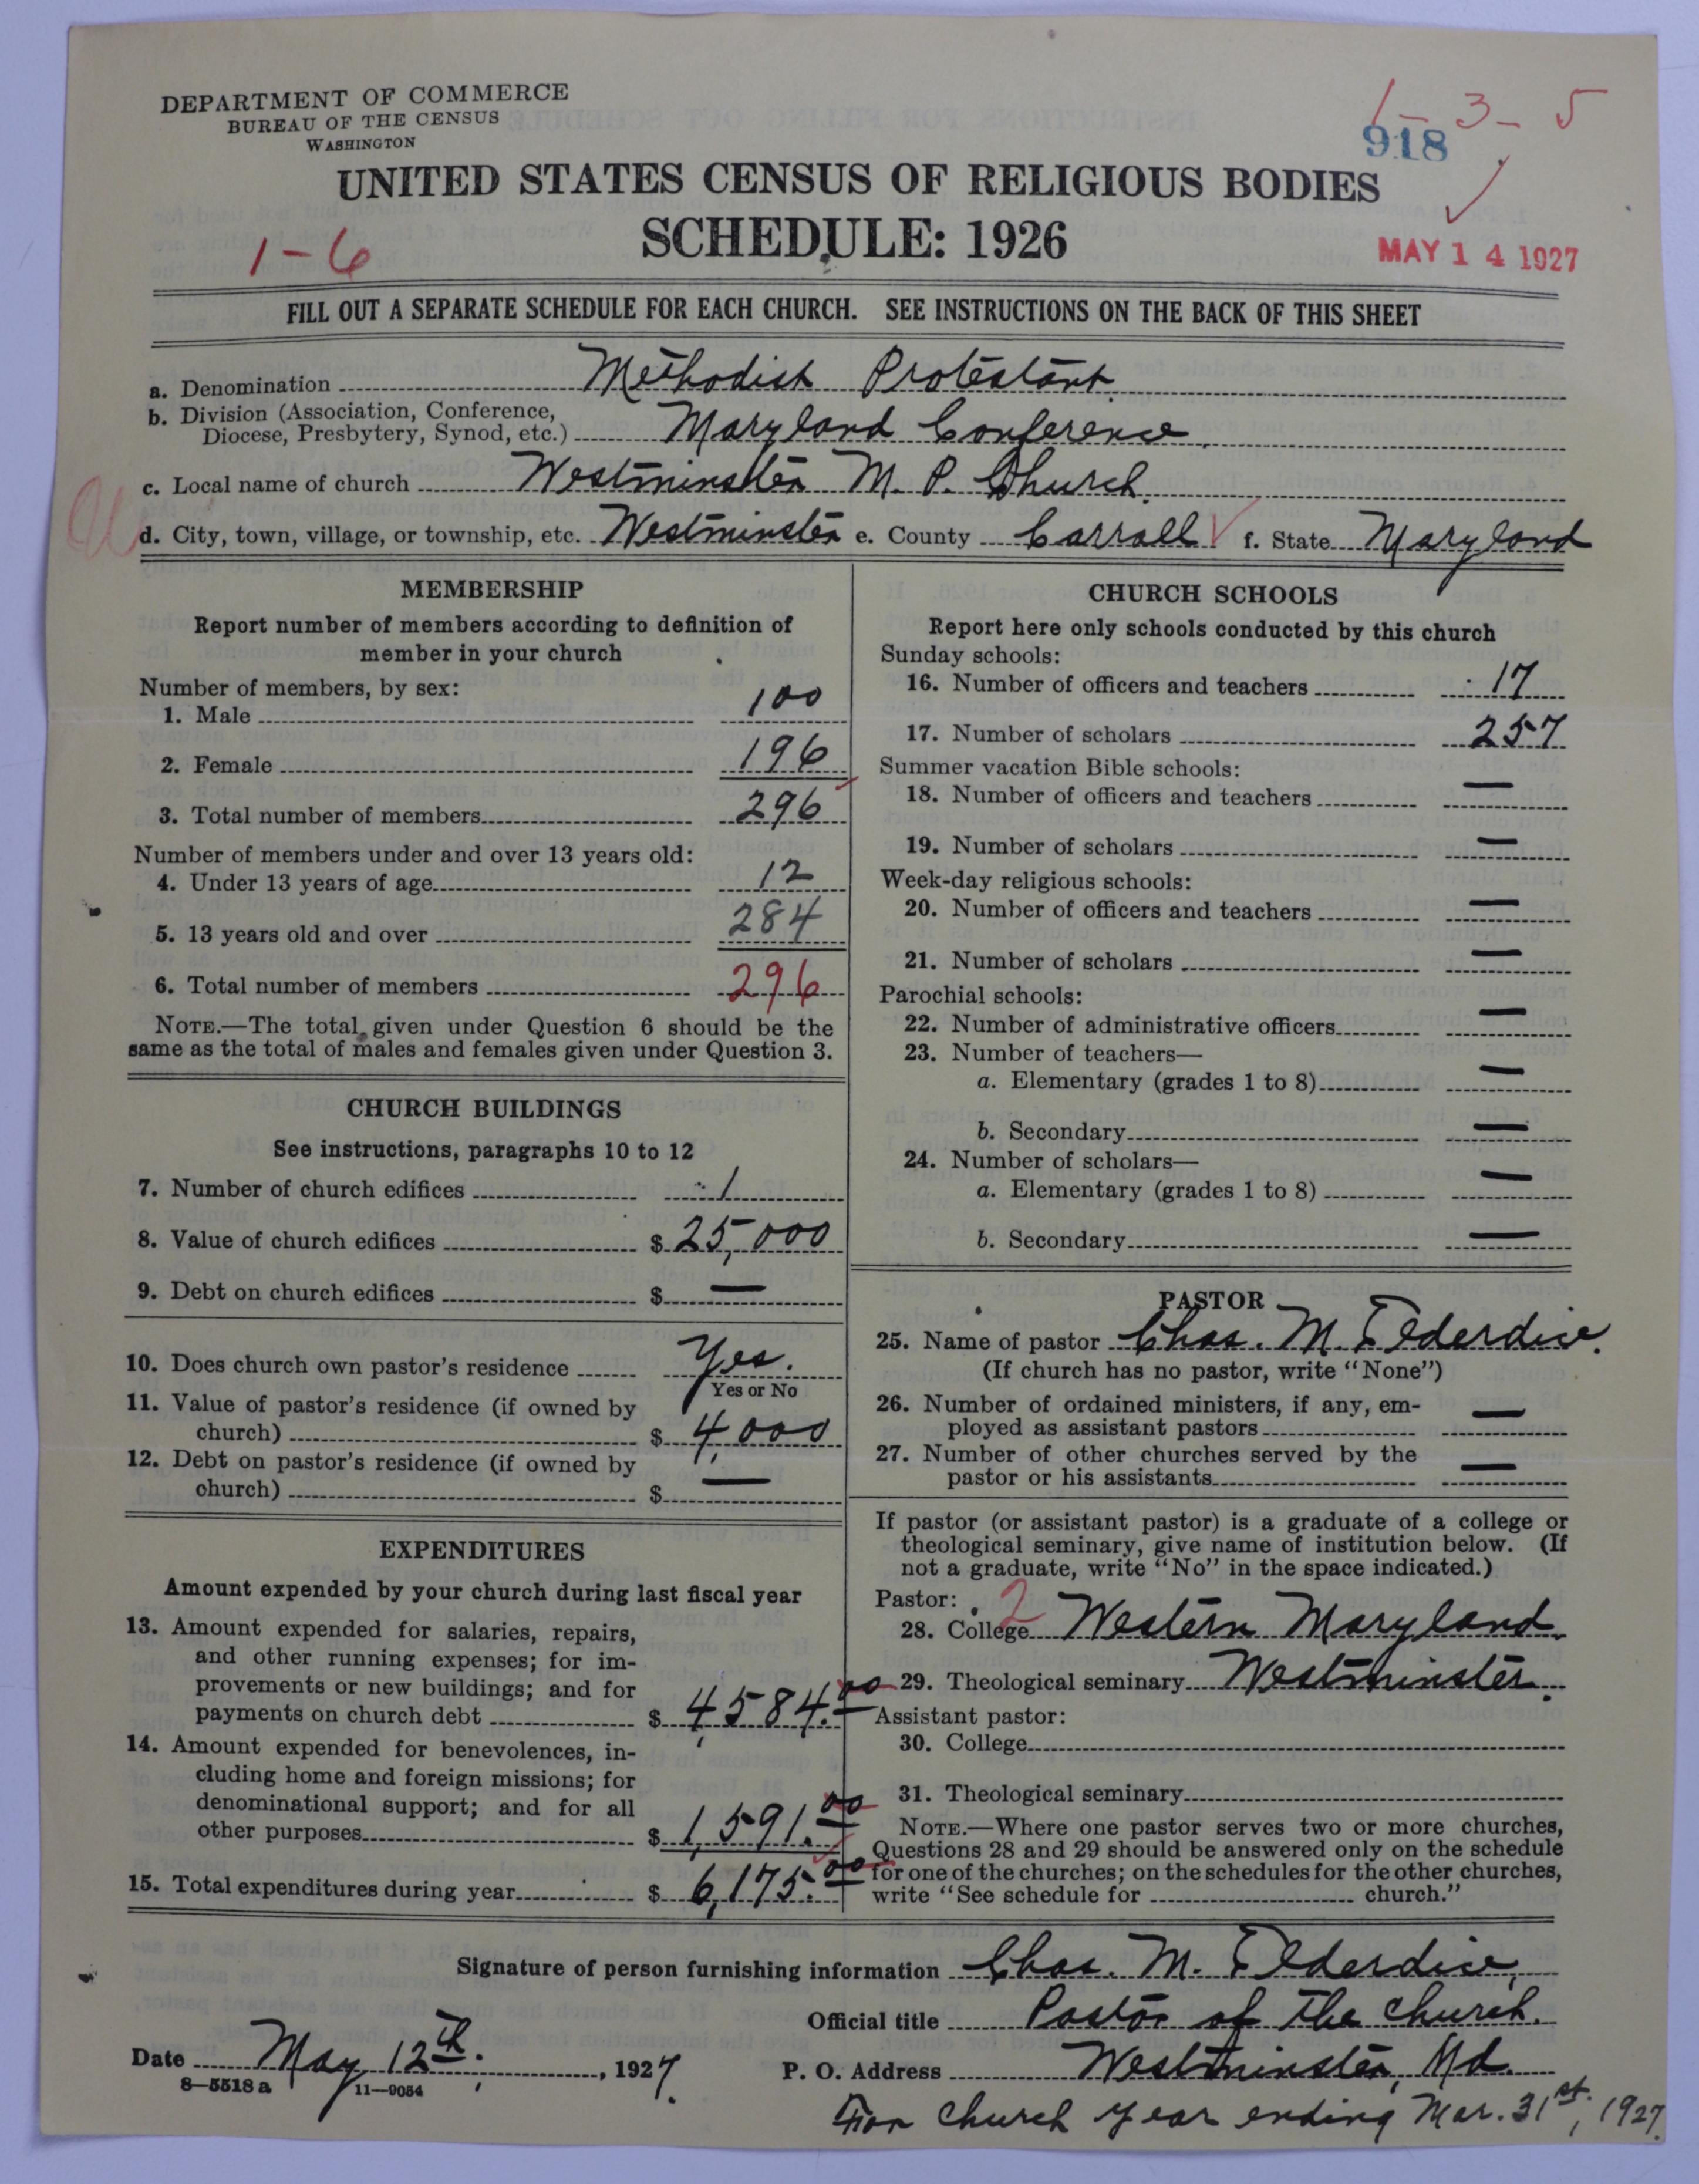 DEPARTMENT OF COMMERCE
BUREAU OF THE CENSUS
WASHINGTON
1 - 3 - 5
918
UNITED STATES CENSUS OF RELIGIOUS BODIES
SCHEDULE: 1926
1-6
MAY 14 1927
FILL OUT A SEPARATE SCHEDULE FOR EACH CHURCH. SEE INSTRUCTIONS ON THE BACK OF THIS SHEET
a. Denomination Methodist Protestant
b. Division (Association, Conference,
Diocese, Presbytery, Synod, etc.) Maryland Conference
c. Local name of church Westminster M. P. Church
d. City, town, village, or township, etc. Westminster e. County Carroll f. State Maryland
MEMBERSHIP
Report number of members according to definition of
member in your church
Number of members, by sex:
1. Male 100
2. Female 196
3. Total number of members 296
Number of members under and over 13 years old:
4. Under 13 years of age 12
5. 13 years old and over 284
6. Total number of members 296
NOTE.—The total given under Question 6 should be the
same as the total of males and females given under Question 3.
CHURCH BUILDINGS
See instructions, paragraphs 10 to 12
7. Number of church edifices 1
8. Value of church edifices $ 25,000
9. Debt on church edifices $ —
10. Does church own pastor's residence Yes.
Yes or No
11. Value of pastor's residence (if owned by
church) $ 4,000
12. Debt on pastor's residence (if owned by
church) $ —
EXPENDITURES
Amount expended by your church during last fiscal year
13. Amount expended for salaries, repairs,
and other running expenses; for im-
provements or new buildings; and for
payments on church debt $ 4,584.00
14. Amount expended for benevolences, in-
cluding home and foreign missions; for
denominational support; and for all
other purposes $ 1,591.00
15. Total expenditures during year $ 6,175.00
CHURCH SCHOOLS
Report here only schools conducted by this church
Sunday schools:
16. Number of officers and teachers 17
17. Number of scholars 257
Summer vacation Bible schools:
18. Number of officers and teachers —
19. Number of scholars —
Week-day religious schools:
20. Number of officers and teachers —
21. Number of scholars —
Parochial schools:
22. Number of administrative officers —
23. Number of teachers—
a. Elementary (grades 1 to 8) —
b. Secondary —
24. Number of scholars—
a. Elementary (grades 1 to 8) —
b. Secondary —
PASTOR
25. Name of pastor Chas. M. Elderdice.
(If church has no pastor, write "None")
26. Number of ordained ministers, if any, em-
ployed as assistant pastors —
27. Number of other churches served by the
pastor or his assistants —
If pastor (or assistant pastor) is a graduate of a college or
theological seminary, give name of institution below. (If
not a graduate, write "No" in the space indicated.)
Pastor: 2
28. College Western Maryland.
29. Theological seminary Westminster.
Assistant pastor:
30. College
31. Theological seminary
NOTE.—Where one pastor serves two or more churches,
Questions 28 and 29 should be answered only on the schedule
for one of the churches; on the schedules for the other churches,
write "See schedule for church."
Signature of person furnishing information Chas. M. Elderdice,
Official title Pastor of the church.
Date May 12th. , 1927.
P. O. Address Westminster, Md.
8—5518 a 11—9054
For church year ending Mar. 31st, 1927.